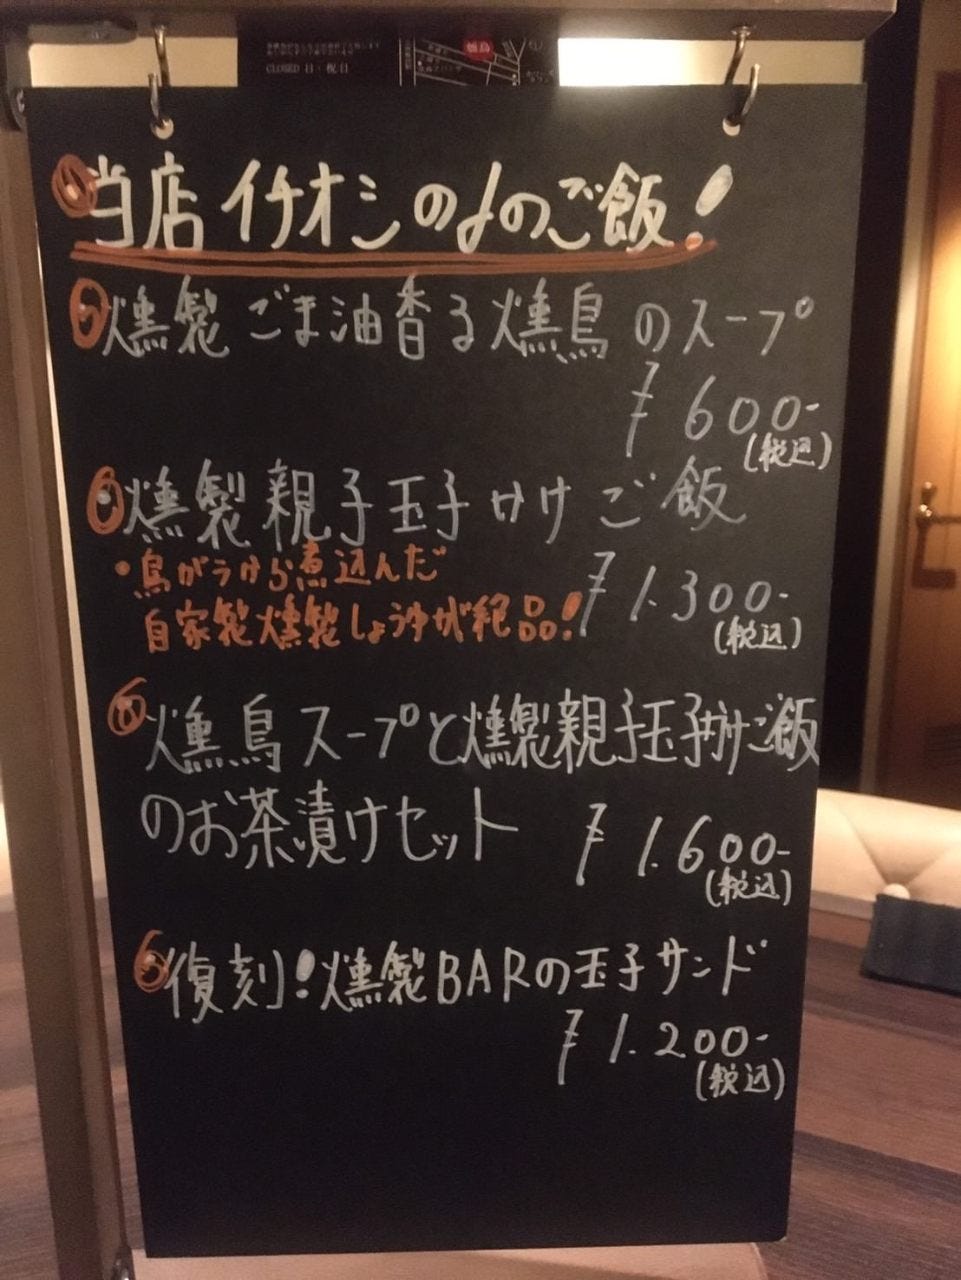 CLOSED 日・祝日
燻鳥
当店イチオシの〆のご飯!
燻製ごま油香る燻鳥のスープ
¥600-
(税込)
燻製親子玉子かけご飯
・鳥がらから煮込んだ
自家製燻製しょうゆが絶品!
¥1.300-
(税込)
燻鳥スープと燻製親子玉子かけご飯
のお茶漬けセット
¥1.600-
(税込)
復刻!燻製BARの玉子サンド
¥1.200-
(税込)